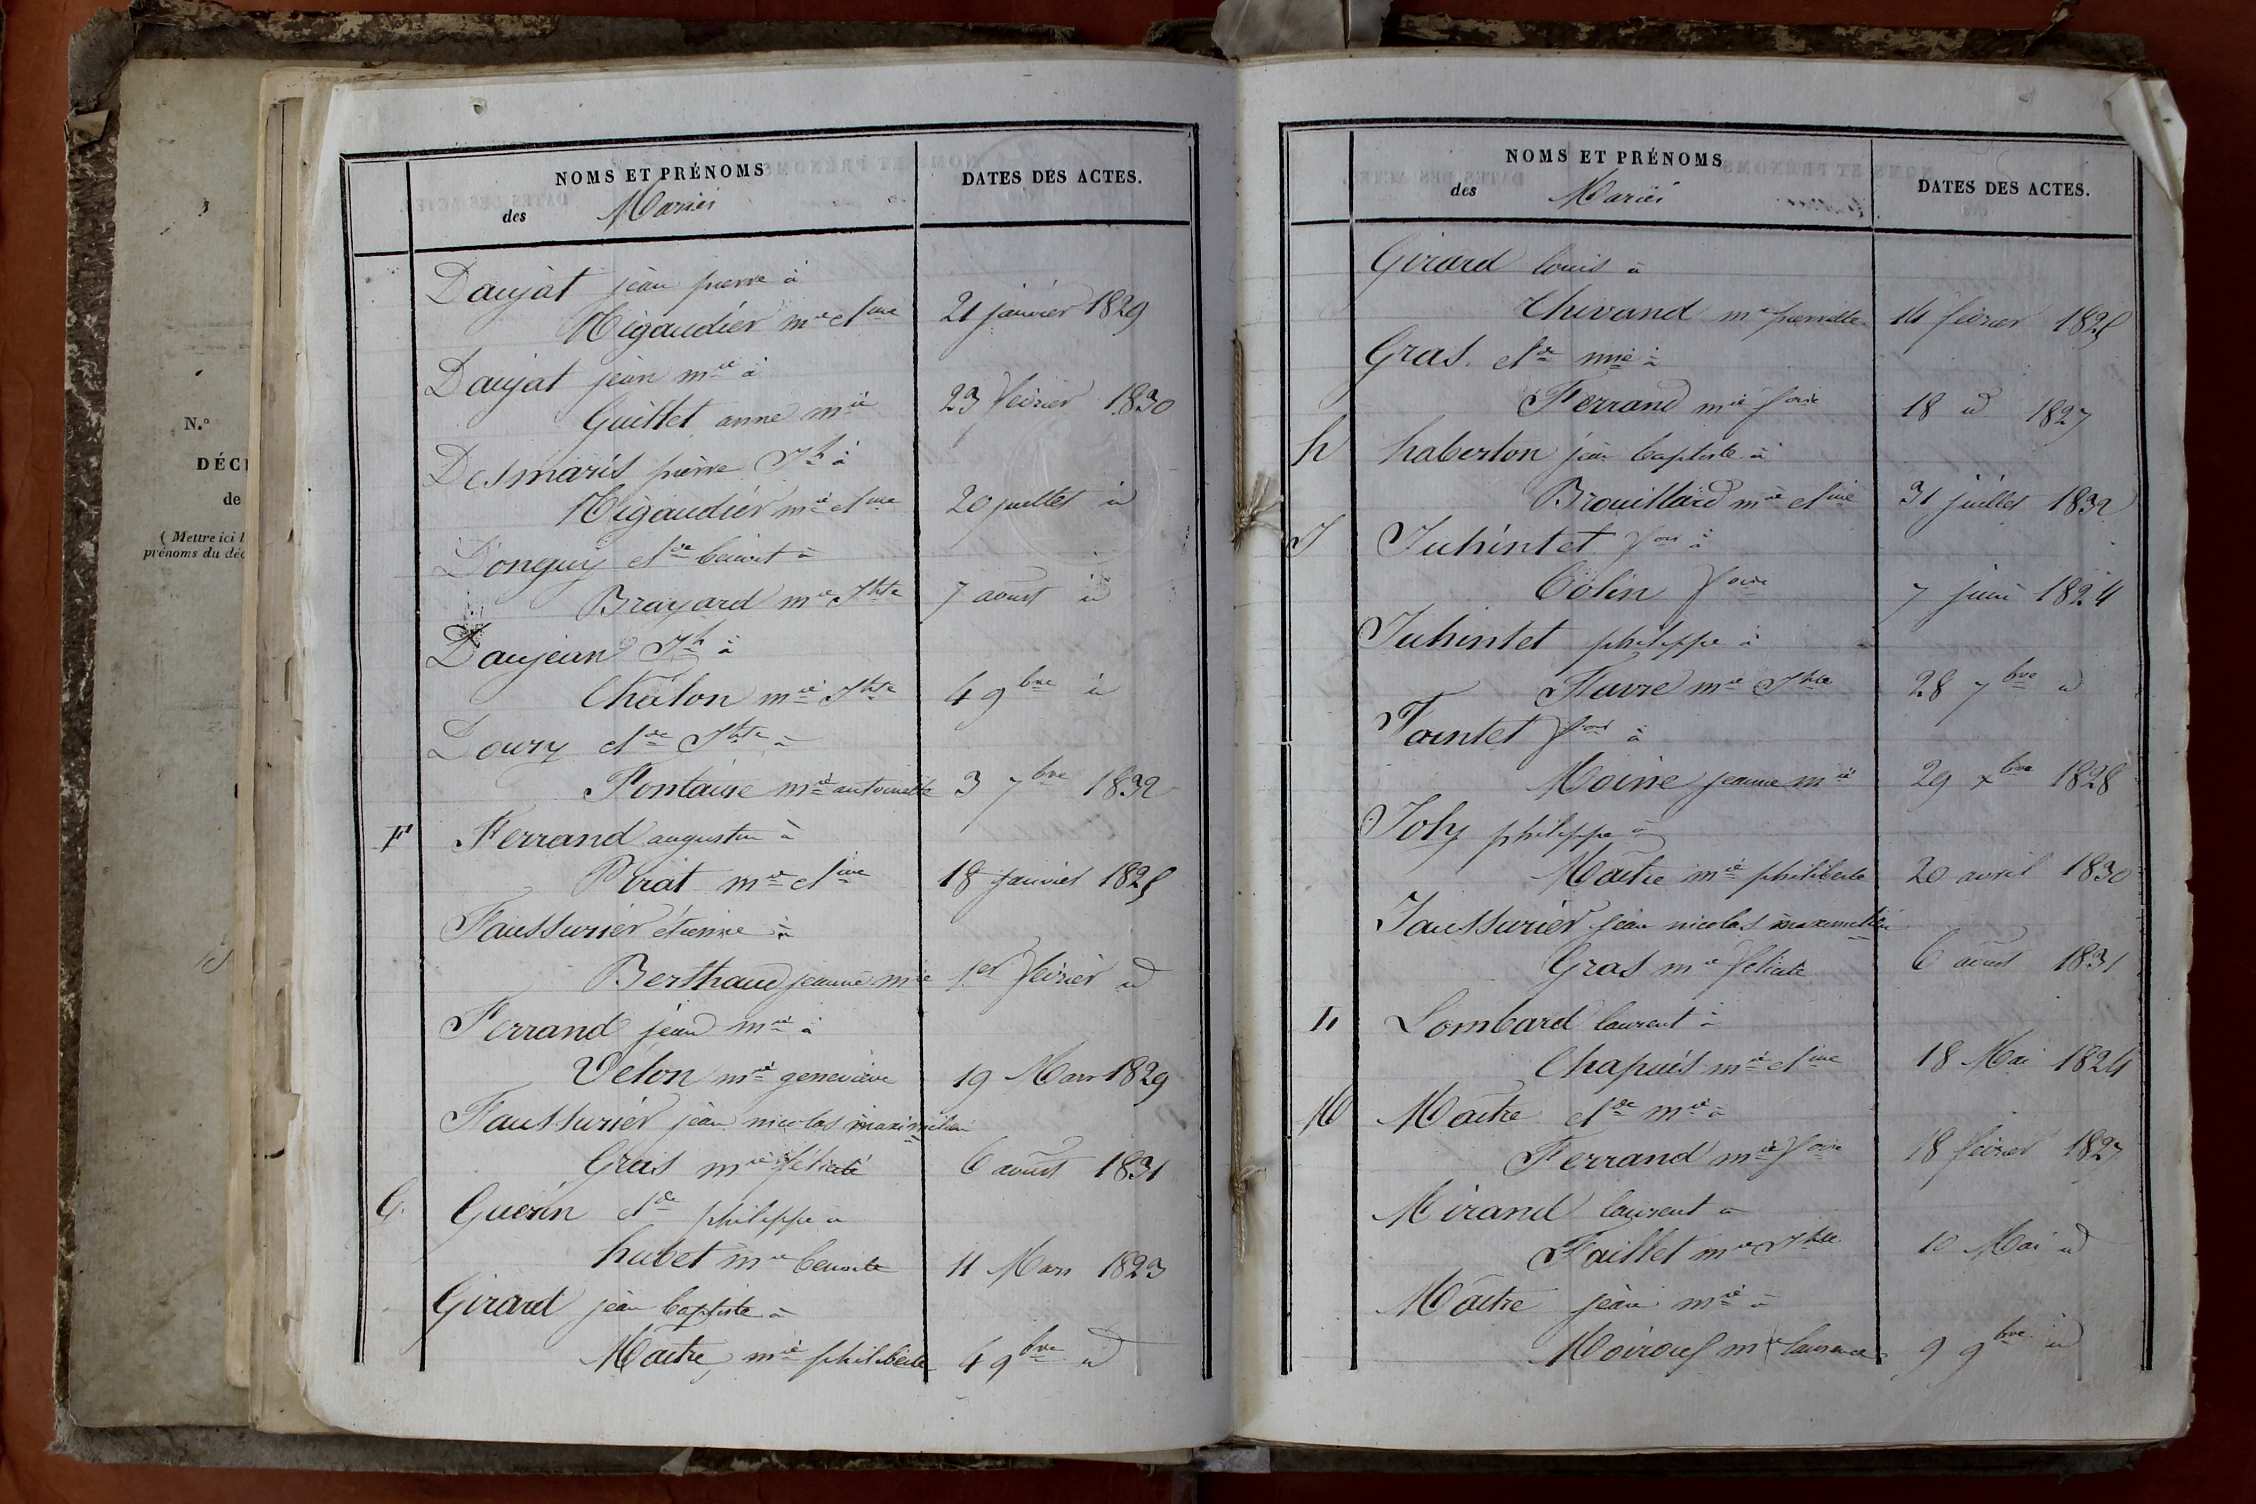 N.°
DÉC
de
( Mettre ici l
prénoms du déc
NOMS ET PRÉNOMS
des Mariés
DATES DES ACTES.
Daujat jean pierre à
Rigaudier mie cline 21 janvier 1829
Daujat jean mie à
Guillet anne mie 23 février 1830
Desmaris pierre Jh à
Rigaudier mie cline 20 juillet id
Donguy cl de benoit à
Brayard mie Jhte 7 aoust id
Daujean Jh à
Châlon mie Jhte 4 9bre id
Doury cl de Jhte à
Fontaine mie antoinette 3 7bre 1832
F Ferrand augustin à
Pirat mie cline 18 janvier 1825
Faussurier étienne à
Berthaud jeanne mie 1er février id
Ferrand jean mie à
Velon mie geneviève 19 Mars 1829
Faussurier jean nicolas maximilien
Gras mie félicité 6 aoust 1831
G. Guerin cl de philippe à
hubet mie benoite 11 Mars 1823
Girard jean baptiste à
Maitre mie philiberte 4 9bre id
NOMS ET PRÉNOMS
des Mariés
DATES DES ACTES.
Girard louis à
Chevand mie pierrette 14 février 1825
Gras cl de mie à
Ferrand mie foise 18 id 1827
h haberton jean baptiste à
Brouillard mie cline 31 juillet 1832
J Juhintet fois à
Colin foise 7 juin 1824
Juhintet philippe à
Favre mie Jhte 28 7bre id
Jointet fois à
Moine jeanne mie 29 xbre 1828
Joly philippe à
Maitre mie philiberte 20 avril 1830
Jaussurier jean nicolas maximilien
Gras mie félicité 6 aoust 1831
L Lombard laurent à
Chapuis mie cline 18 Mai 1824
M Maitre cl de mie à
Ferrand mie foise 18 février 1827
Mirand laurent à
Faillet mie Jhte 10 Mai id
Maitre jean mie à
Moiroud mie laurence 9 9bre id